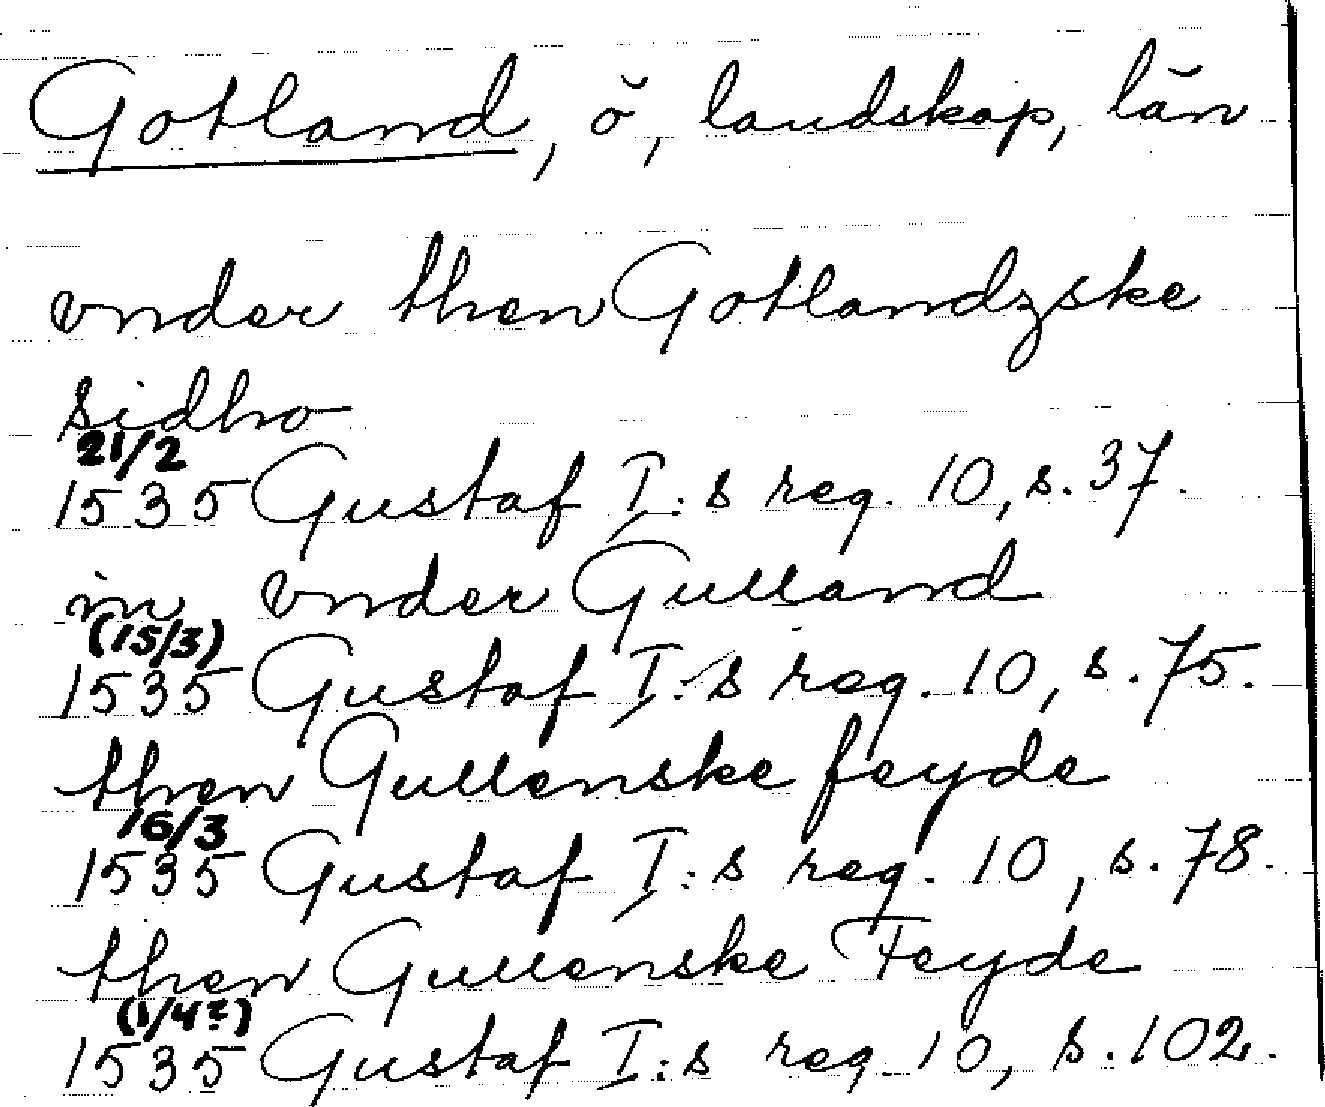 Gotland, ö, landskap, län
vnder then Gotlandzske
sidho
21/2
1535 Gustaf I:s reg. 10, s. 37.
in vnder Gulland
(15/3)
1535 Gustaf I:s reg. 10, s. 75.
then Gullenske feyde
16/3
1535 Gustaf I:s reg. 10, s. 78.
then Gullenske Feyde
(1/4?)
1535 Gustaf I:s reg 10, s. 102.